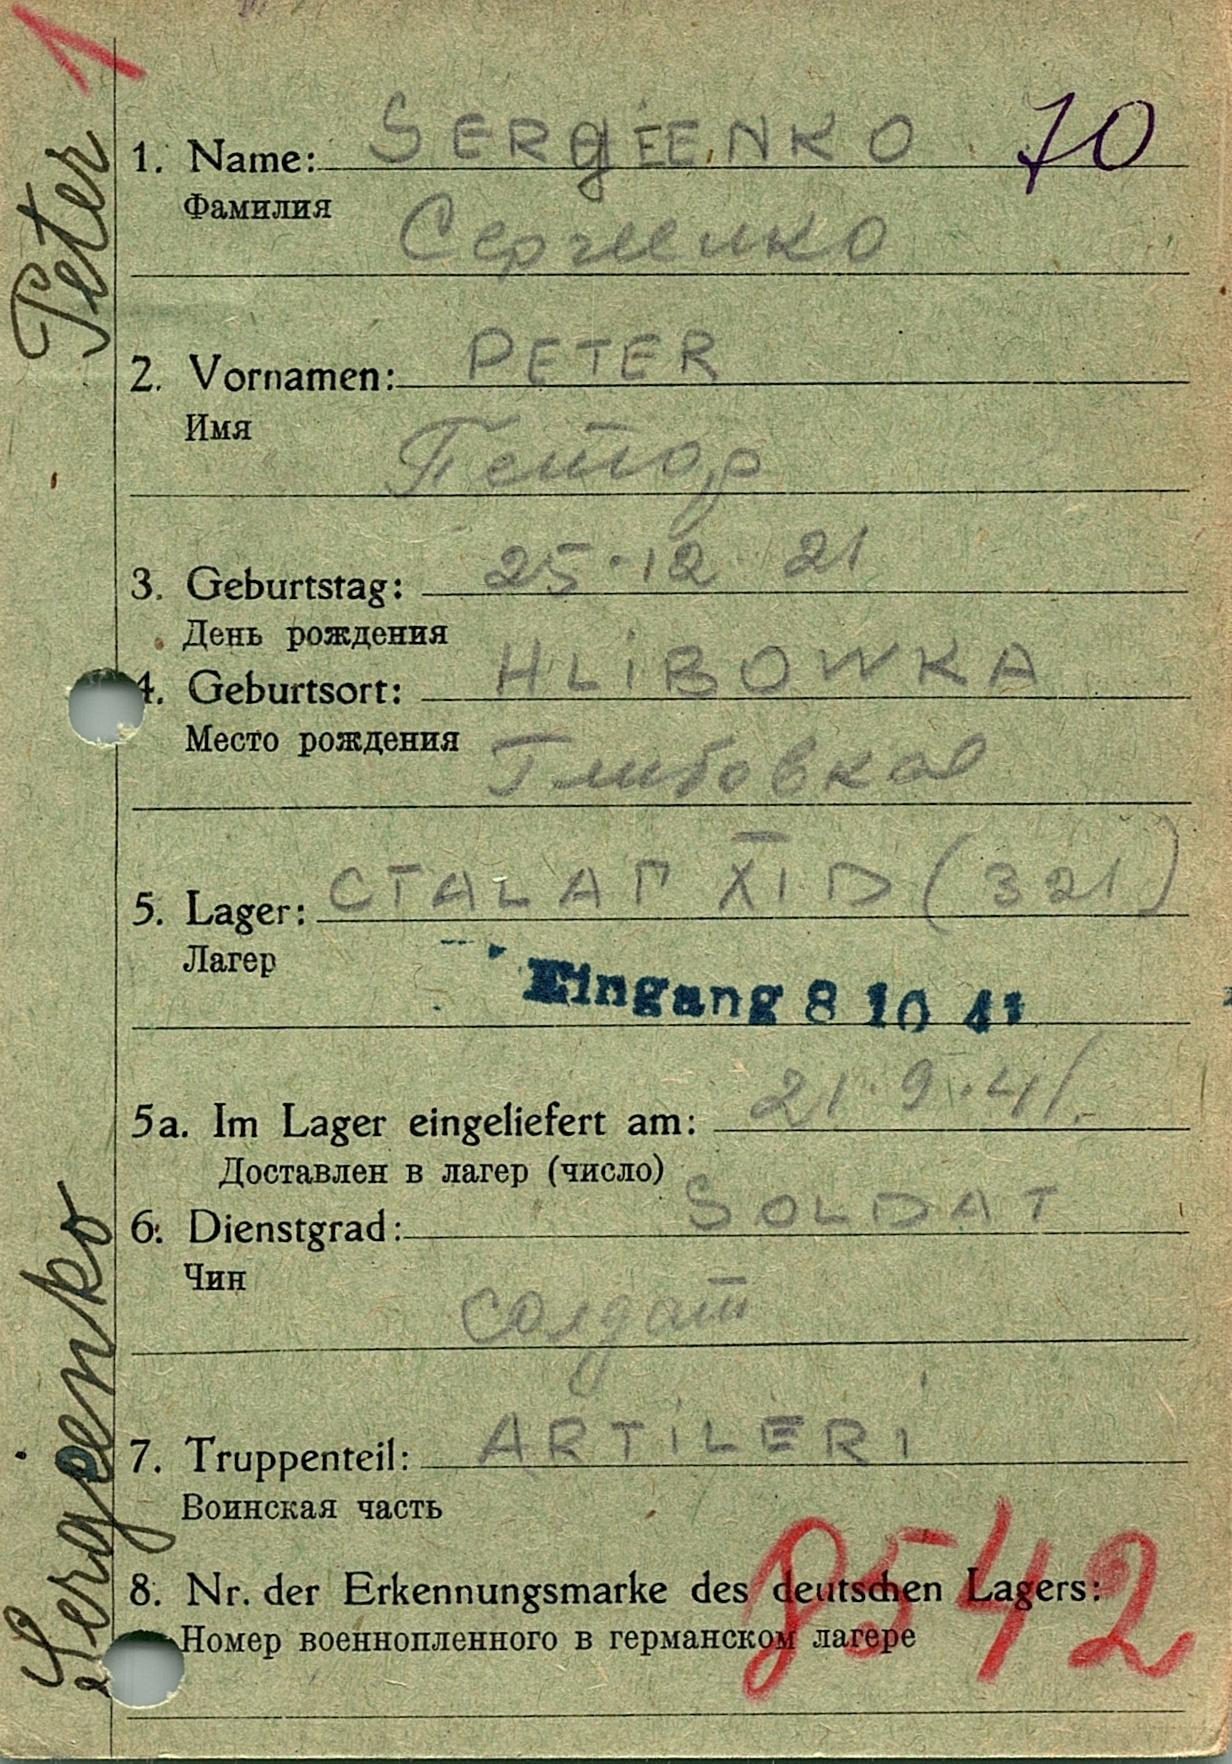 1
Peter
Sergienko
1. Name: SERGIENKO 70
Фамилия Сергиенко
2. Vornamen: PETER
Имя Петор
3. Geburtstag: 25·12 21
День рождения
4. Geburtsort: HLiBOWKA
Место рождения Глибовка
5. Lager: СТАLАГ XI D (321)
Лагер
Eingang 8 10 41
5a. Im Lager eingeliefert am: 21·9·41.
Доставлен в лагер (число)
6. Dienstgrad: SOLDAT
Чин
солдат
7. Truppenteil: ARTiLERi
Воинская часть
8. Nr. der Erkennungsmarke des deutschen Lagers:
Номер военнопленного в германском лагере
8542